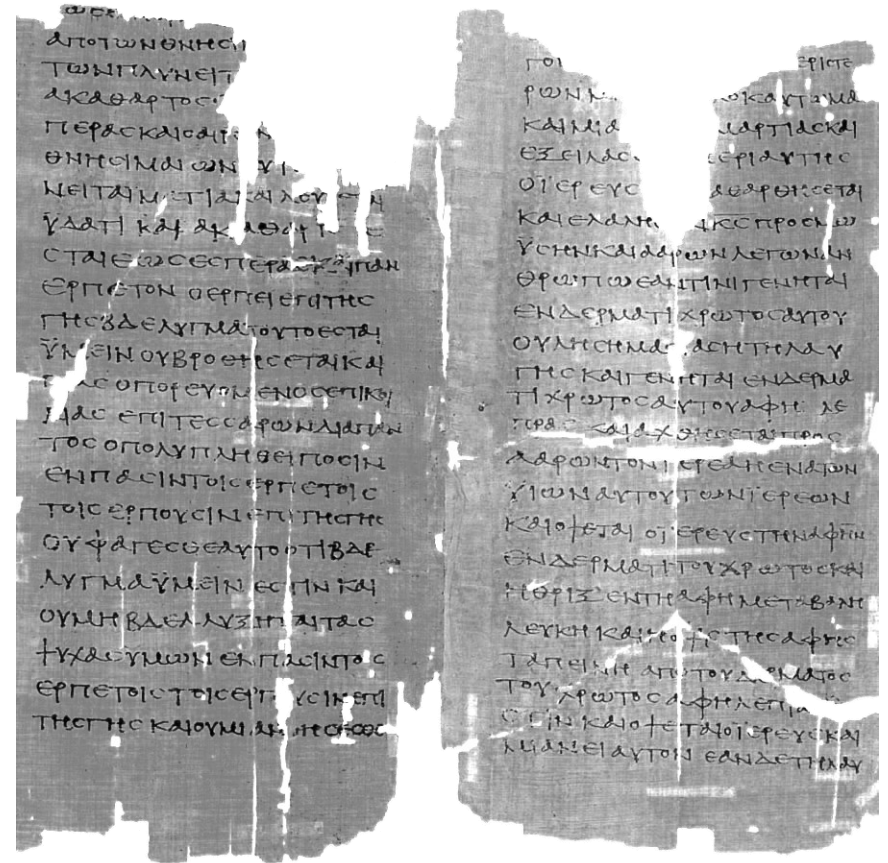 ΑΠΟΤΩΝΘΝΗCΙ
ΤΩΝΠΛΥΝΕΙΤ
ΑΚΑΘΑΡΤΟC
ΠΕΡΑCΚΑΙΟΑΙΡ
ΘΝΗCΙΜΑΙΩΝ
ΝΕΙΤΑΙΜΑΤΙΑΚΑΙΛΟΥ
ΫΔΑΤΙ ΚΑΙ ΑΚΑΘΑΡΤ
CΤΑΙΕΩCΕCΠΕΡΑCΚΑΙΠΑΝ
ΕΡΠΕΤΟΝ ΟΕΡΠΕΙΕΠΙΤΗC
ΓΗCΒΔΕΛΥΓΜΑΤΟΥΤΟΕCΤΑΙ
ΫΜΕΙΝΟΥΒΡΟΘΗCΕΤΑΙΚΑΙ
ΑCΟΠΟΡΕΥΟΜΕΝΟCΕΠΙΚΟΙ
ΛΙΑC ΕΠΙΤΕCCΑΡΩΝΔΙΑΠΑΝ
ΤΟCΟΠΟΛΥΠΛΗΘΕΙΠΟCΙΝ
ΕΝΠΑCΙΝΤΟΙCΕΡΠΕΤΟΙC
ΤΟΙCΕΡΠΟΥCΙΝΕΠΙΤΗCΓΗC
ΟΥΦΑΓΕCΘΕΑΥΤΟΟΤΙΒΔΕ
ΛΥΓΜΑΫΜΕΙΝ ΕCΤΙΝ ΚΑΙ
ΟΥΜΗΒΔΕΛΛΥΞΗΤΑΙΤΑC
ΨΥΧΑCΥΜΩΝ ΕΝΠΑCΙΝΤΟC
ΕΡΠΕΤΟΙCΤΟΙCΕΡΠΥCΙΝΕΠΙ
ΤΗCΓΗC ΚΑΙΟΥΜΙΑΝΗCΕCΘΕ
ΤΟΙ ΕΡΙCΤΕ
ΡΩΝ ΟΚΑΥΤΩΜΑ
ΚΑΙΜΙΑ ΜΑΡΤΙΑCΚΑΙ
ΕΞΕΙΛΑC ΕΡΙΑΥΤΗC
ΟΪΕΡΕΥC ΑΘΑΡΘΗCΕΤΑΙ
ΚΑΙΕΛΑΛΗ ΚCΠΡΟCΜΩ
ΫCΗΝΚΑΙΑΑΡΩΝΛΕΓΩΝΑΝ
ΘΡΩΠΩΕΑΝΤΙΝΙΓΕΝΗΤΑΙ
ΕΝΔΕΡΜΑΤΙΧΡΩΤΟCΑΥΤΟΥ
ΟΥΛΗCΗΜΑ ΑCΗΤΗΛΑΥ
ΓΗCΚΑΙΓΕΝΗΤΑΙ ΕΝΔΕΡΜΑ
ΤΙΧΡΩΤΟCΑΥΤΟΥΑΦΗ ΛΕ
ΠΡΑC ΚΑΙΑΧΘΗCΕΤΑΙΠΡΟC
ΑΑΡΩΝΤΟΝΙΕΡΕΑΗΕΝΑΤΩΝ
ΫΙΩΝΑΥΤΟΥΤΩΝΪΕΡΕΩΝ
ΚΑΙΟΨΕΤΑΙ ΟΪΕΡΕΥCΤΗΝΑΦΗΝ
ΕΝΔΕΡΜΑΤΙΤΟΥΧΡΩΤΟCΚΑΙ
ΗΘΡΙΞ ΕΝΤΗΑΦΗΜΕΤΑΒΑΛΗ
ΛΕΥΚΗΚΑΙΗΟΨΙCΤΗCΑΦΗC
ΤΑΠΕΙΝΗ ΑΠΟΤΟΥΔΕΡΜΑΤΟC
ΤΟΥ ΧΡΩΤΟCΑΦΗΛΕΠΡΑ
CΤΙΝ ΚΑΙΟΨΕΤΑΙΟΪΕΡΕΥCΚΑΙ
ΜΙΑΝΕΙΑΥΤΟΝ ΕΑΝΔΕΤΗΛΑΥ